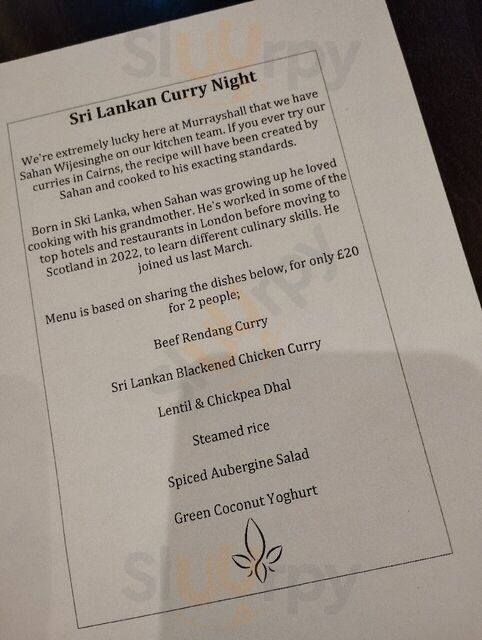 Sri Lankan Curry Night
We're extremely lucky here at Murrayshall that we have
Sahan Wijesinghe on our kitchen team. If you ever try our
curries in Cairns, the recipe will have been created by
Sahan and cooked to his exacting standards.
Born in Ski Lanka, when Sahan was growing up he loved
cooking with his grandmother. He's worked in some of the
top hotels and restaurants in London before moving to
Scotland in 2022, to learn different culinary skills. He
joined us last March.
Menu is based on sharing the dishes below, for only £20
for 2 people;
Beef Rendang Curry
Sri Lankan Blackened Chicken Curry
Lentil & Chickpea Dhal
Steamed rice
Spiced Aubergine Salad
Green Coconut Yoghurt
Sluurpy
Sluurpy
Sluurpy